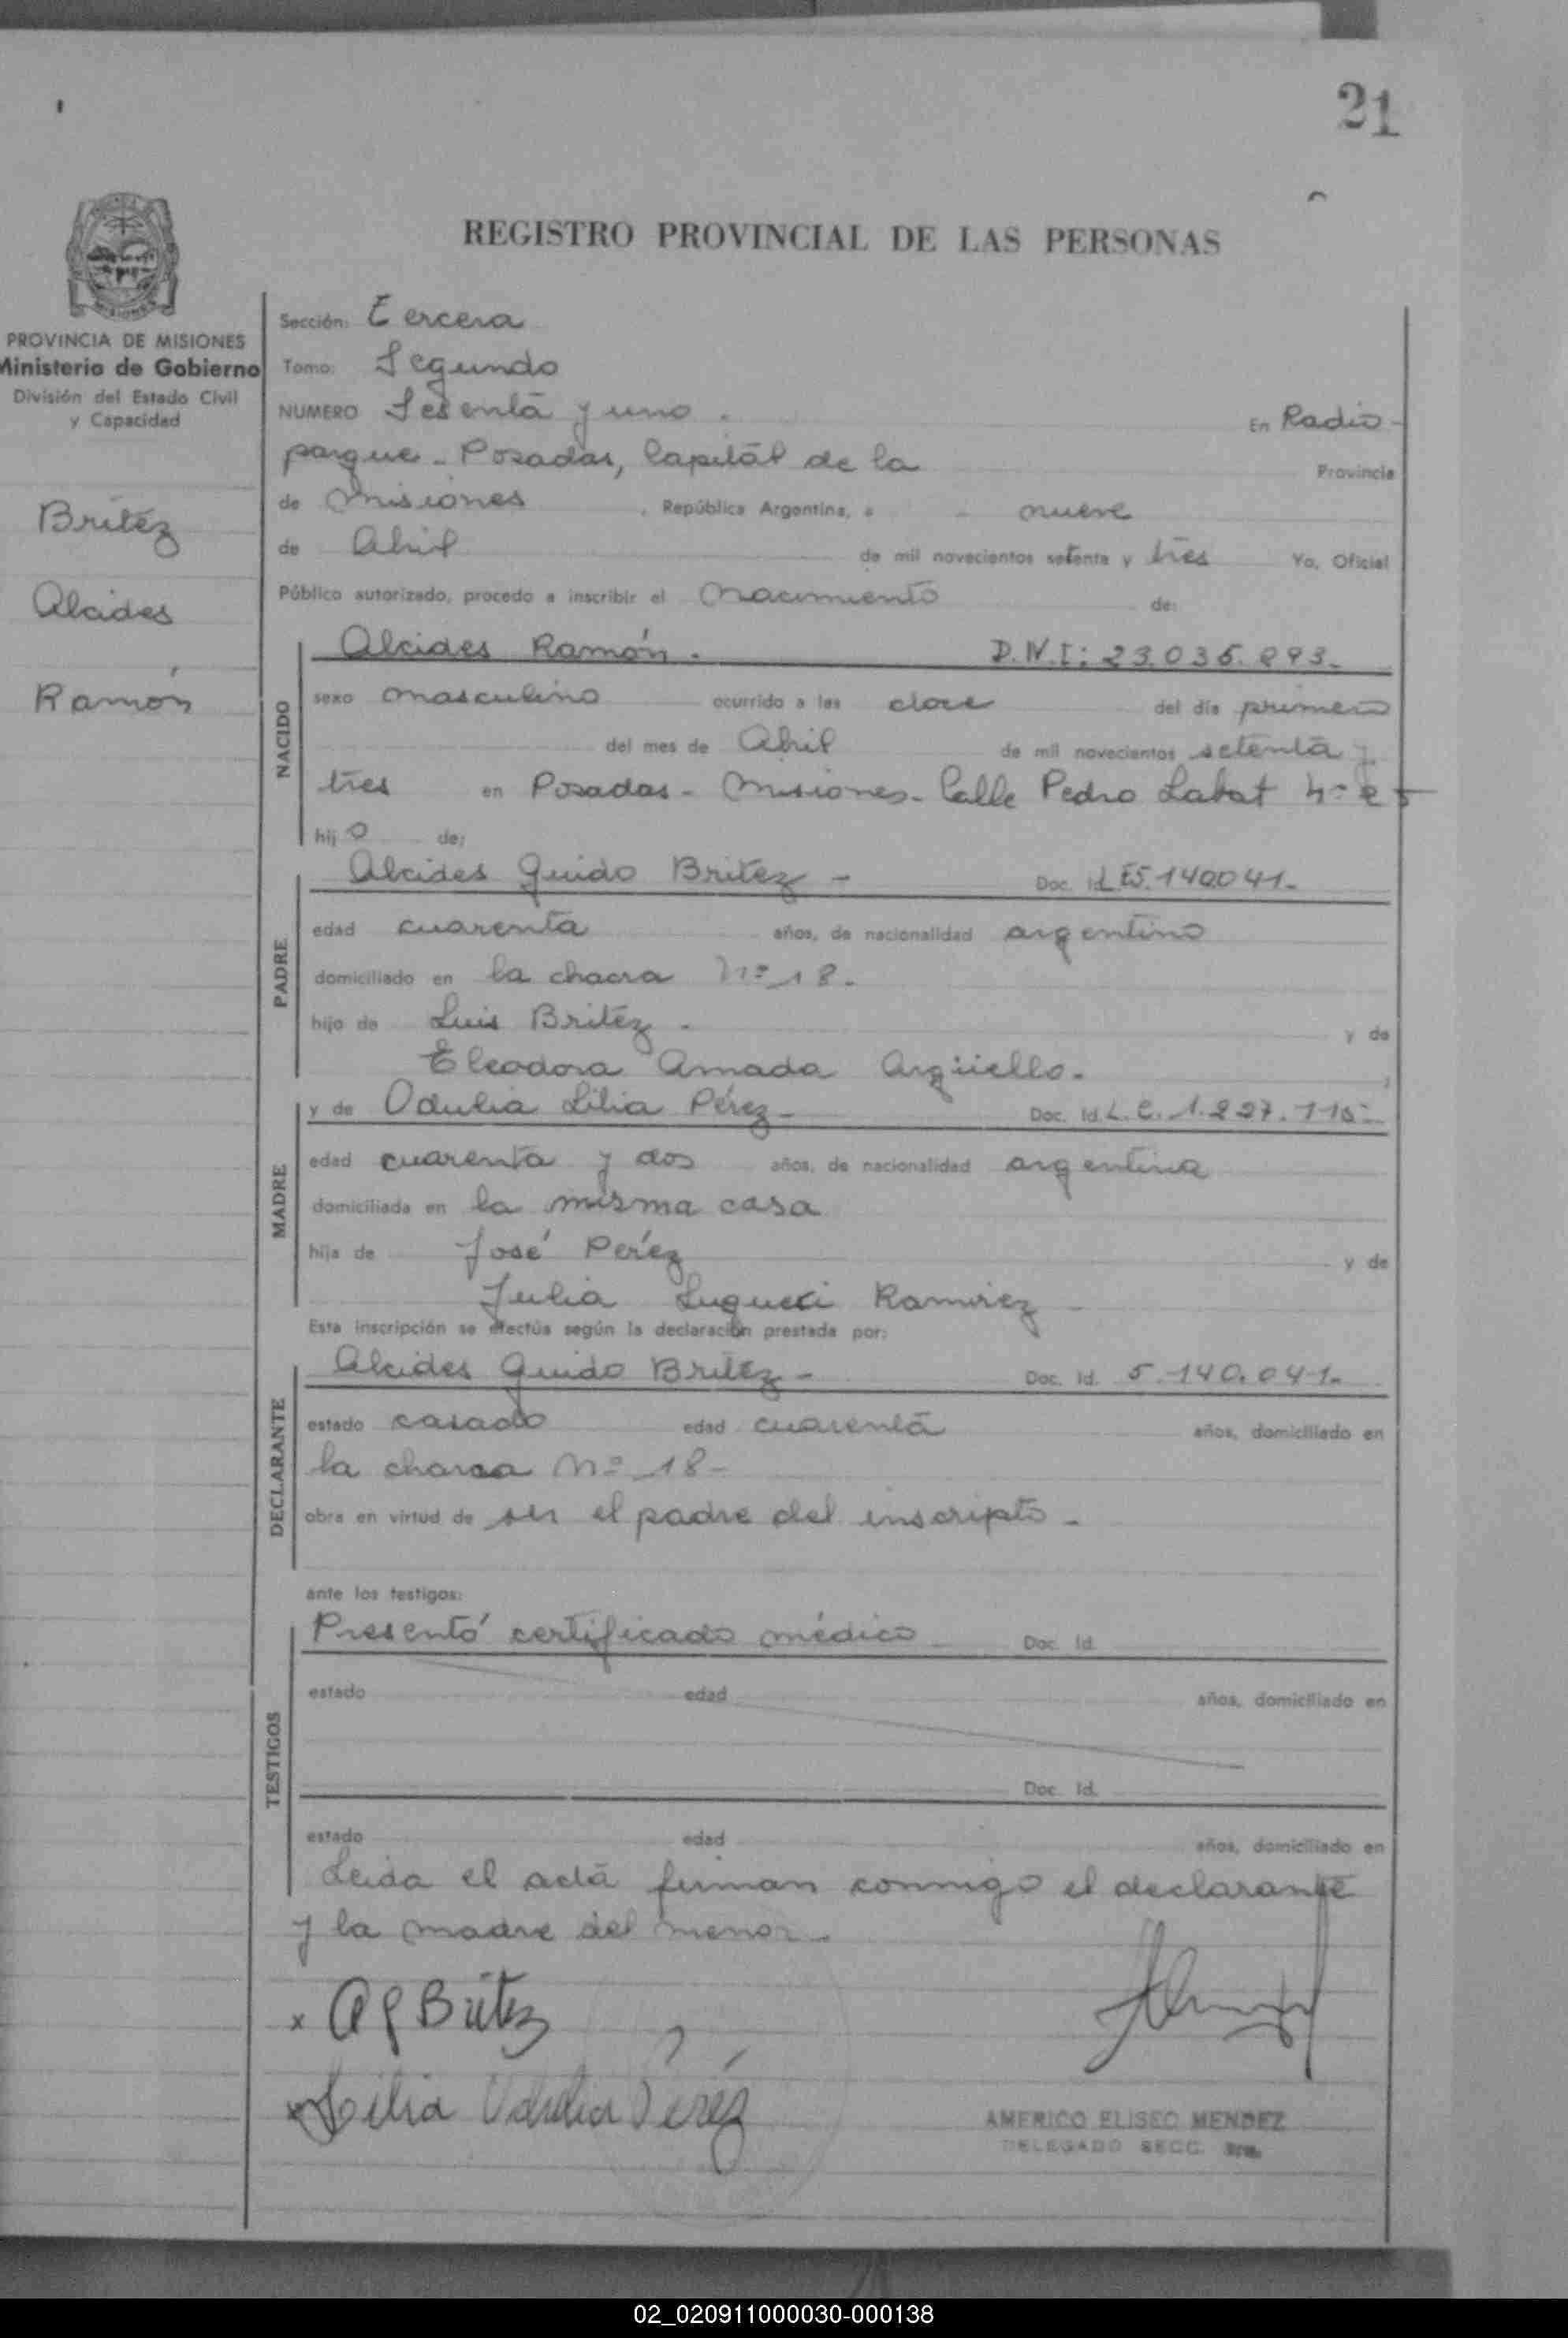 21
REGISTRO PROVINCIAL DE LAS PERSONAS
PROVINCIA DE MISIONES
Ministerio de Gobierno
División del Estado Civil
y Capacidad
Britez
Alcides
Ramón
Sección: Tercera
Tomo: Segundo
NUMERO Sesenta y uno. En Radio
parque - Posadas, Capital de la Provincia
de Misiones, República Argentina, a nueve
de Abril de mil novecientos setenta y tres Yo, Oficial
Público autorizado, procedo a inscribir el Nacimiento de:
NACIDO
Alcides Ramón. D.N.I: 23.035.893.
sexo masculino ocurrido a las doce del día primero
del mes de Abril de mil novecientos setenta y
tres en Posadas - Misiones - Calle Pedro Labat
hijo de:
PADRE
Alcides Guido Britez - Doc. Id. L E 5.140.041-
edad cuarenta años, de nacionalidad argentino
domiciliado en la chacra Nº 18.
hijo de Luis Britez. y de
Eleodora Amada Argüello.
MADRE
y de Odulia Lilia Pérez - Doc. Id. L.C. 1.227.115-
edad cuarenta y dos años, de nacionalidad argentina
domiciliada en la misma casa
hija de José Peréz y de
Julia Ramirez
Esta inscripción se efectúa según la declaración prestada por:
DECLARANTE
Alcides Guido Britez - Doc. Id. 5.140.041-
estado casado edad cuarenta años, domiciliado en
la chacra Nº 18-
obra en virtud de ser el padre del inscripto -
ante los testigos:
TESTIGOS
Presentó certificado médico Doc. Id.
estado edad años, domiciliado en
Doc. Id.
estado edad años, domiciliado en
Leida el acta firman conmigo el declarante
y la madre del menor.
x AG Britez
x Lilia Odulia Pérez
AMERICO ELISEO MENDEZ
DELEGADO SECC. 3ra.
02_020911000030-000138